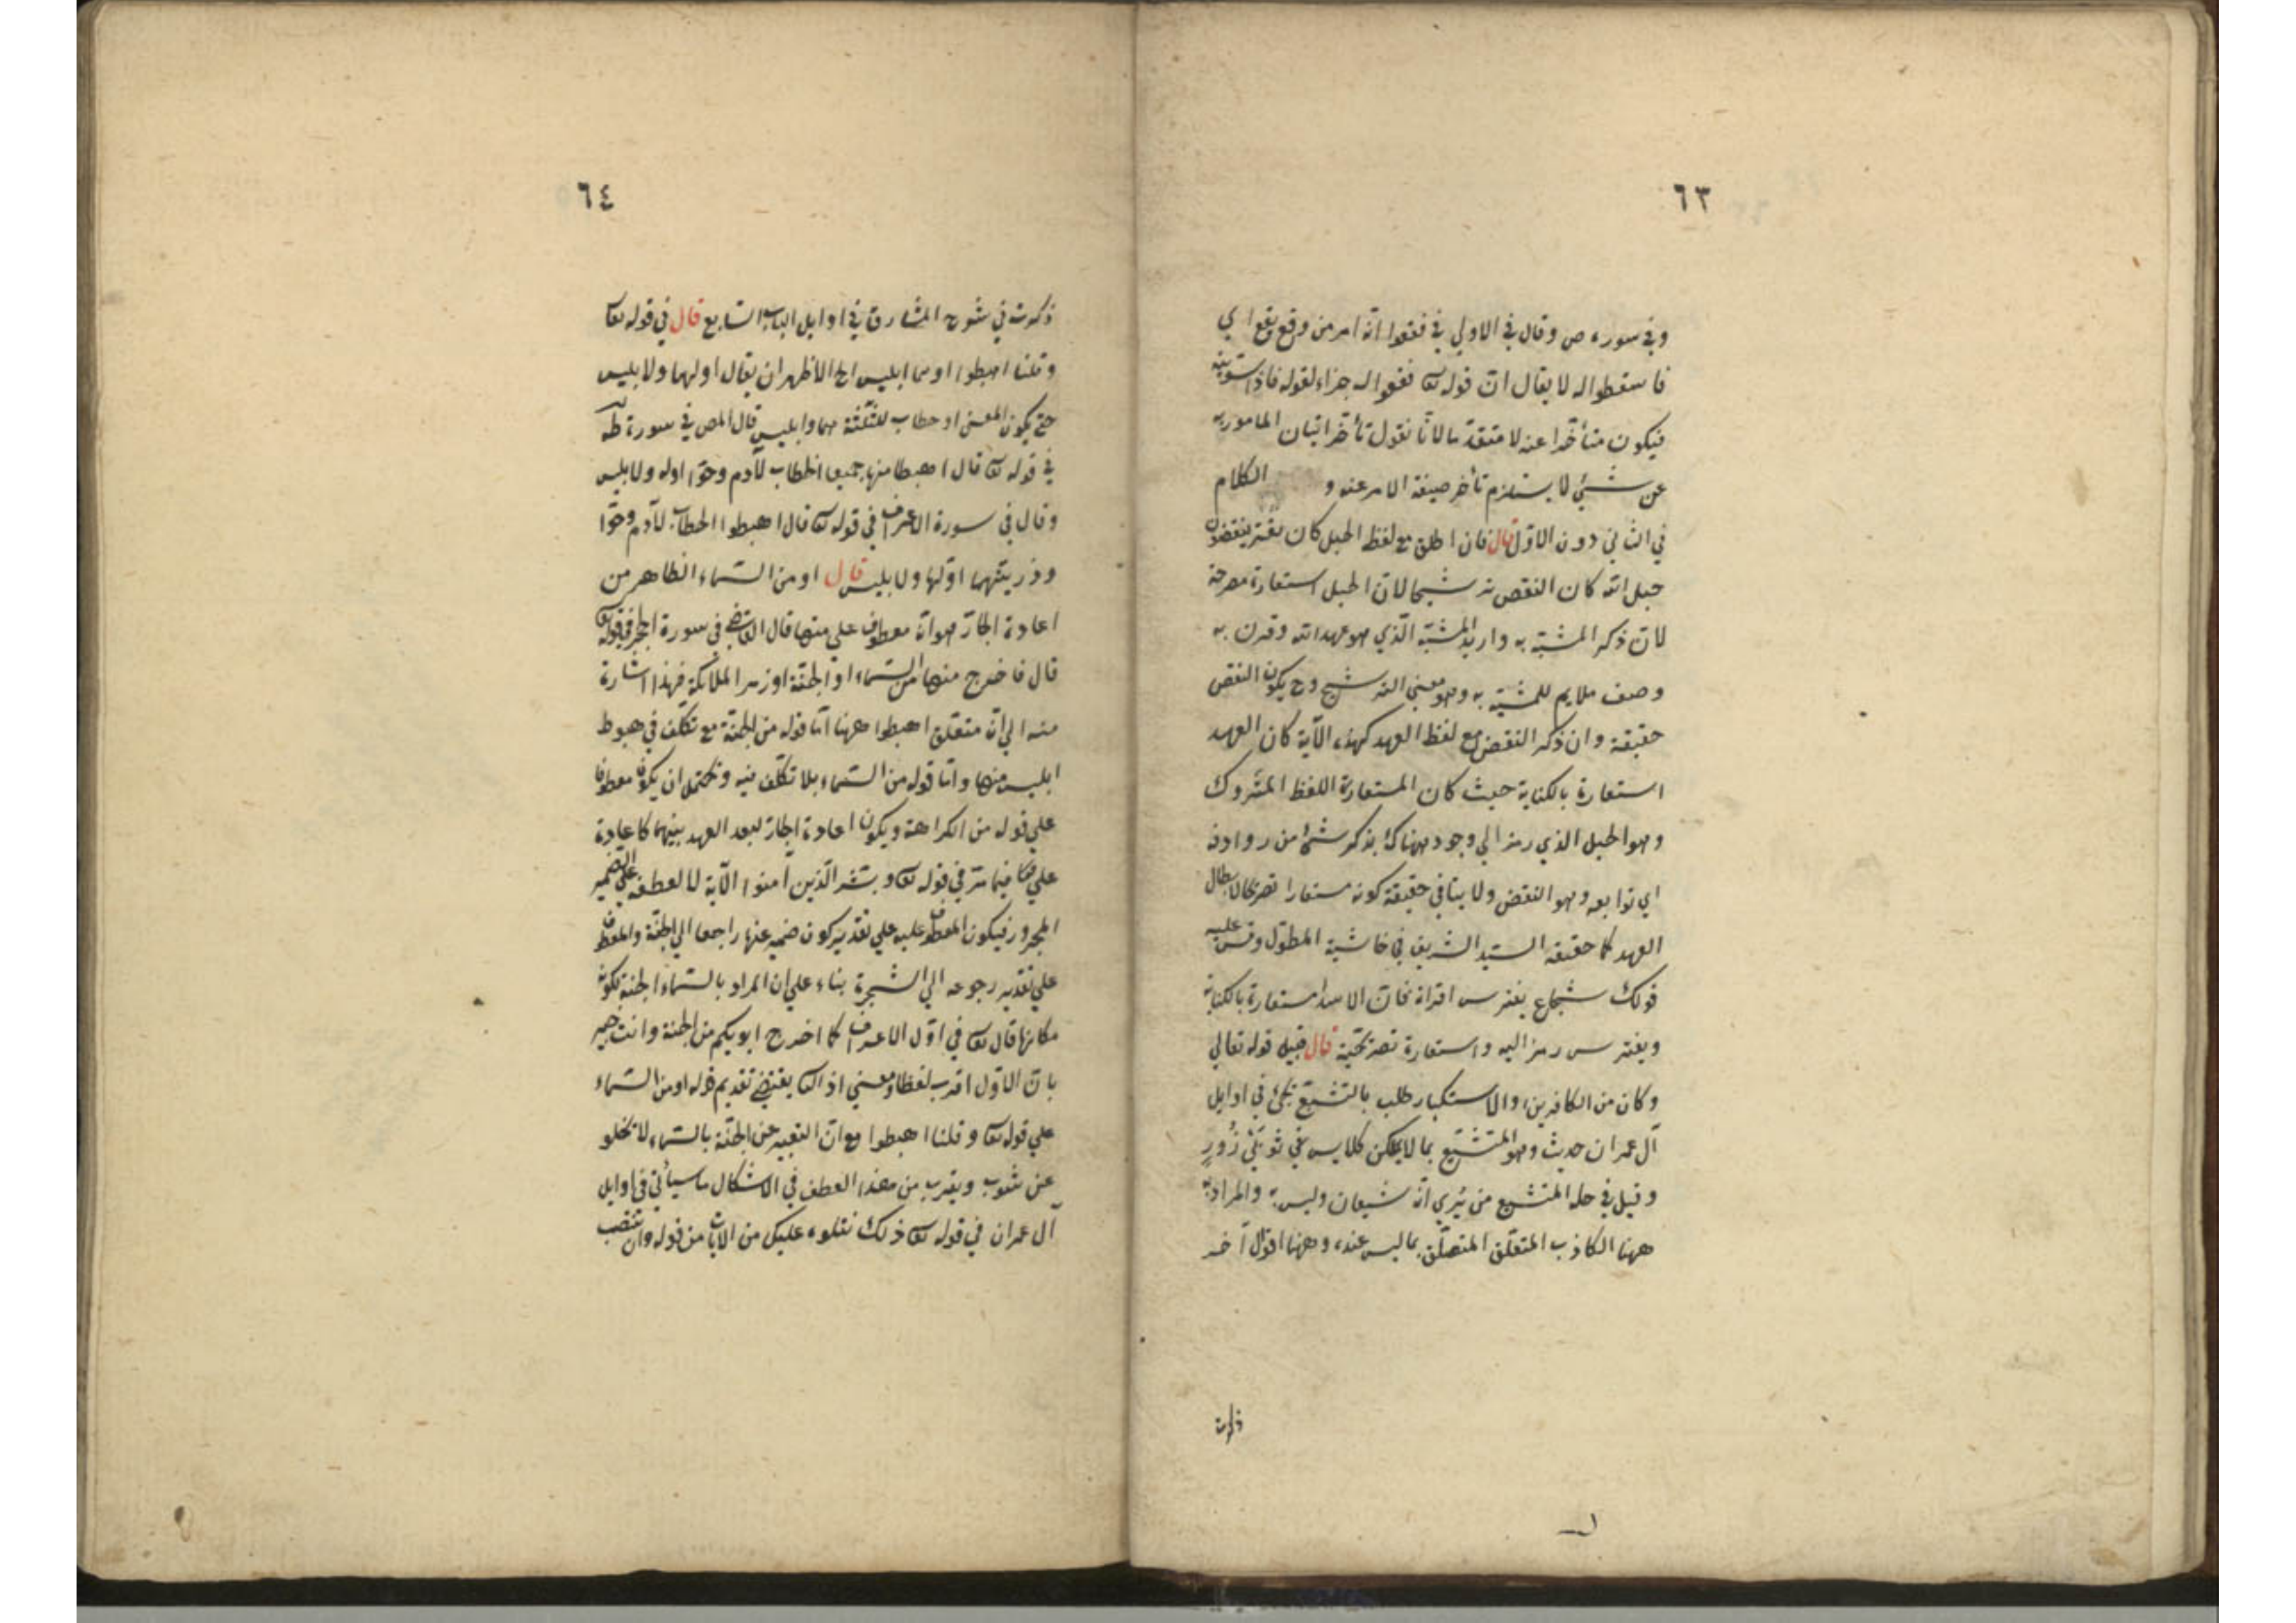 ٦٣
وفي سورة ص وقال في الاولي في فقعوا انّه امر من وقع يقع اي
فاسقطوا له لا يقال انّ قوله تعا فقعوا له جزاء لقوله فاذا سوّيته
فيكون متأخّرا عنه لا متقدّما لانّا نقول تأخّر اتيان المامور به
عن شئ لا يستلزم تأخر صيغة الامر عنه و الكلام
في الثاني دون الاوّل قال فان اطلق مع لفظ الحبل كان يفتر ينقضون
حبل الله كان النقض ترشيحا لانّ الحبل استعارة مصرحة
لانّ ذكر المشبّه به واريد المشبّه الّذي هو عهد الله وقرن به
وصف ملايم للمشبّه به وهو معني الترشيح وح يكون النقض
حقيقة وان ذكر النقض مع لفظ العهد كهذه الآية كان العهد
استعارة بالكناية حيث كان المستعار له اللفظ المتروك
وهو الحبل الذي رمز الي وجوده هناك بذكر شئ من روادفه
اي توابعه وهو النقض ولا ينافي حقيقة كونه مستعارا تصريحا لابطال
العهد كما حققه السيّد الشريف في حاشية المطوّل وقس عليه
قولك شجاع يفترس اقرانه فانّ الاسد استعارة بالكناية
ويفترس رمز اليه واستعارة تصريحيّة قال قبيل قوله تعالي
وكان من الكافرين والاستكبار طلب بالتشبّع يجئ في اوايل
آل عمران حديث وهو المتشبّع بما لا يملك كلابس ثوبَيْ زُورٍ
وقيل في حله المتشبع من يُري انّه شبعان وليس به والمراد به
ههنا الكاذب المتعلّق المتصلّف بما ليس عنده وههنا اقوال اخر
ذكرت
٦٤
ذكرت في شرح المشارق في اوايل الباب السابع قال في قوله تعا
وقلنا اهبطوا او هما ابليس الخ الاظهر ان يقال او لهما ولابليس
حتي يكون المعني او خطاب للثلثة هما وابليس قال المص في سورة طه
في قوله تعا قال اهبطا منها جميعا الخطاب لآدم وحوّا او له ولابليس
وقال في سورة الاعراف في قوله تعا قال اهبطوا الخطاب لآدم وحوّا
وذريتهما او لهما ولابليس قال او من السّماء الظاهر من
اعادة الجارّ هو انّه معطوف علي منها قال القاضي في سورة الحجر في قوله تعا
قال فاخرج منها من السّماء او الجنّة او زمر الملائكة فهذا اشارة
منه الي انّ متعلّق اهبطوا ههنا امّا قوله من الجنّة مع تكلّف في هبوط
ابليس منها وامّا قوله من السّماء بلا تكلّف فيه ويحتمل ان يكون معطوفا
علي قوله من الكراهة ويكون اعادة الجارّ لبعد العهد بينهما كاعادة
علي فيما مرّ في قوله تعا وبشّر الّذين آمنوا الآية لا لعطفه علي الضمير
المجرور فيكون المعطوف عليه علي تقدير كون ضمير عنها راجعا الي الجنّة والمعطوف
علي تقدير رجوعه الي الشجرة بناء علي ان المراد بالسّماء الجنة لكونه
مكانها قال تعا في اوّل الاعراف كما اخرج ابويكم من الجنة وانت خبير
بانّ الاوّل اقرب لفظا ومعني اذ الثا يقتضي تقديم قوله او من السّماء
علي قوله تعا وقلنا اهبطوا مع انّ التعبير عن الجنّة بالسّماء لا يخلو
عن شوب ويقرب من هذا العطف في الاشكال ما سيأتي في اوايل
آل عمران في قوله تعا ذلك نتلوه عليك من الايات من قوله وان تنصب